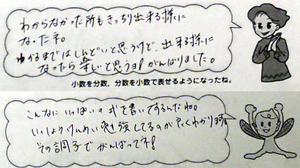 わからなかった所もきっちり出来る様に
なったネ。
わかるまではしんどいと思うけど、出来る様に
なったら楽しいと思うョ!がんばりました。
小数を分数、分数を小数で表せるようになったね。
こんなに いっぱい 式を書いてするんだね。
いい よう 勉強してるのがよくわかります。
その調子でがんばってネ!